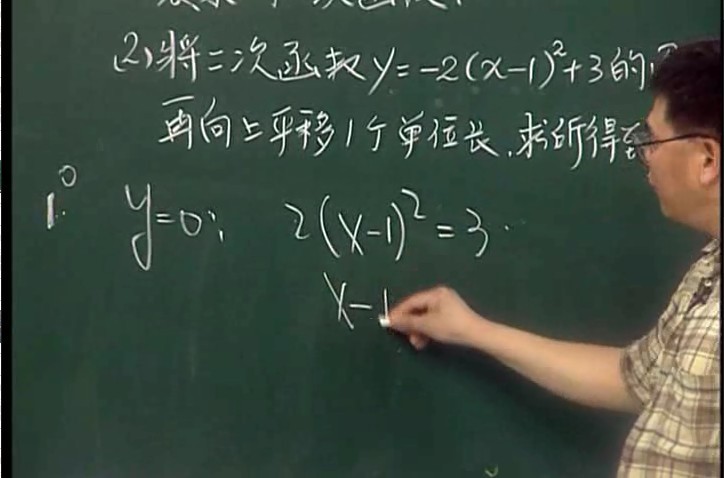 (2)将二次函数y=-2(x-1)²+3的
再向上平移1个单位长,求所得到
1.° y=0; 2(x-1)²=3
x-1